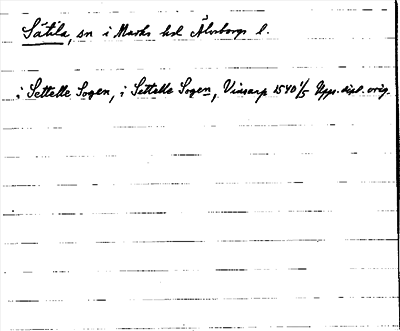 Sätila, sn i Marks hd Älvsborgs l.
i Settelle Sogen, i Settelle Sogen, Vinsarp 1540 1/5 Upps. dipl. orig.